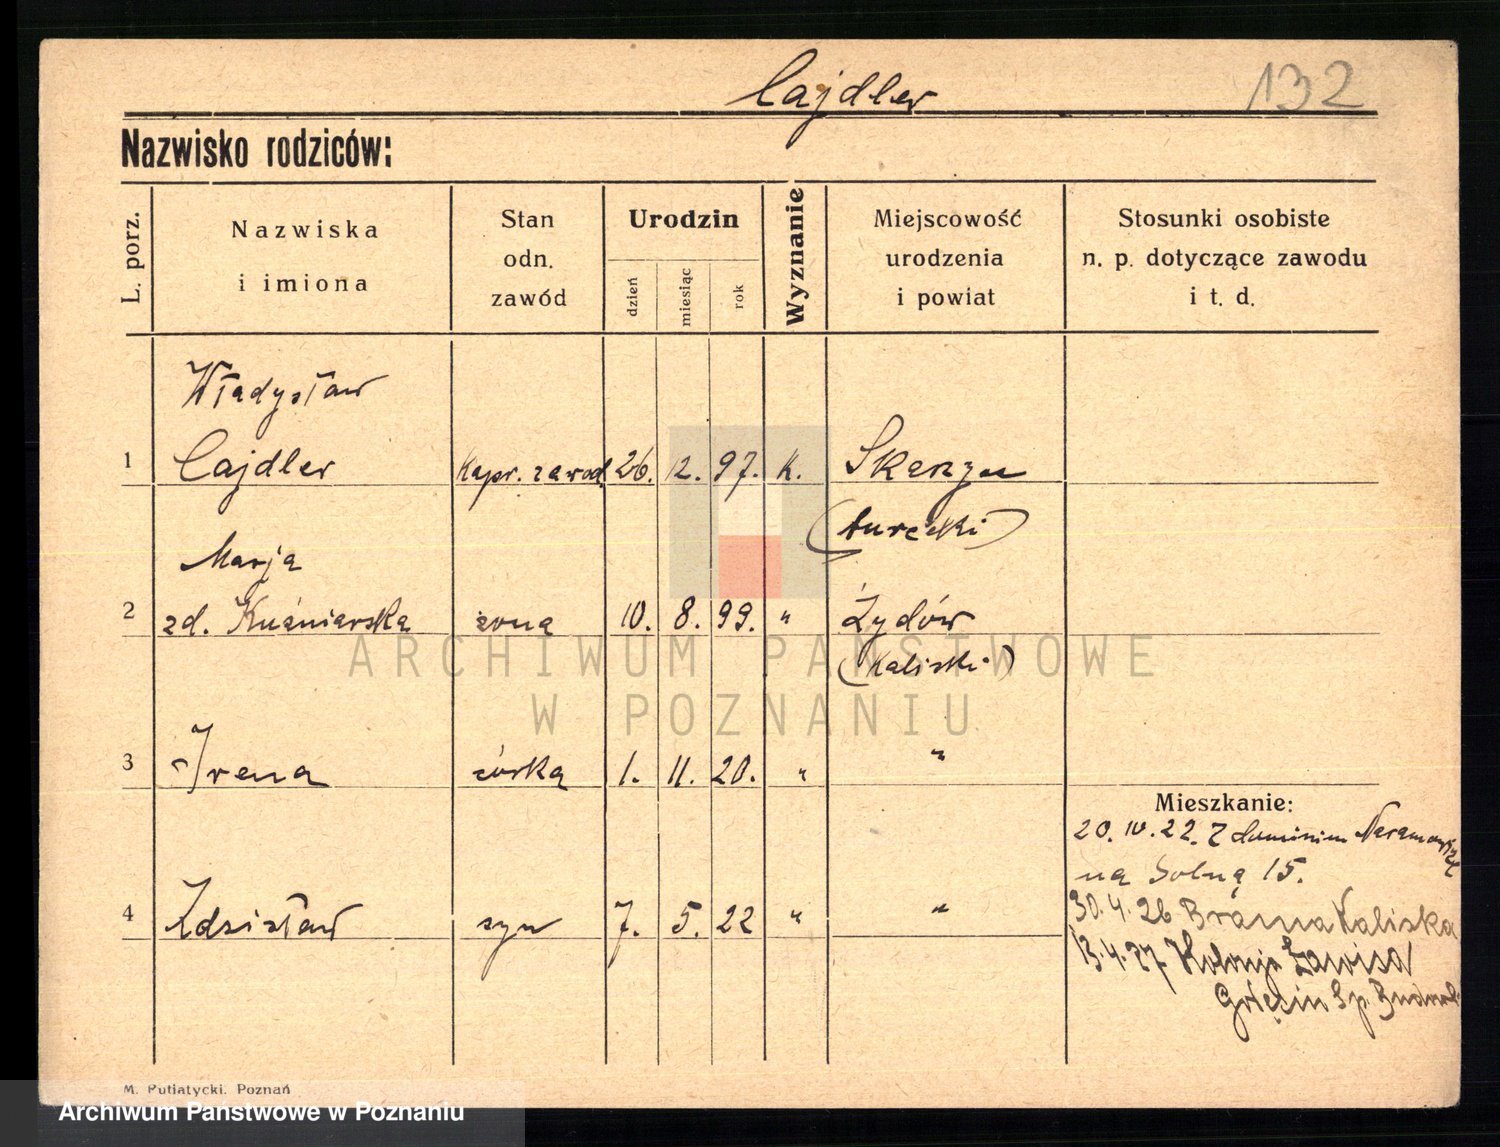 Cajdler
132
Nazwisko rodziców:
L. porz.
Nazwiska
i imiona
Stan
odn.
zawód
Urodzin
dzień
miesiąc
rok
Wyznanie
Miejscowość
urodzenia
i powiat
Stosunki osobiste
n. p. dotyczące zawodu
i t. d.
Władysław
1 Cajdler Kapr. zawod. 26. 12. 97. K.
(turecki)
Marja
2 zd. Kuźniarska żona 10. 8. 99. " Żydów
(kaliski)
3 Irena córka 1. 11. 20. " "
Mieszkanie:
20. IV. 22. Z dominium
na Solną 15.
4 Zdzisław syn 7. 5. 22 " "
30. 4. 26 Brama Kaliska
13. 4. 27
Golęcin Sp.
ARCHIWUM PAŃSTWOWE
W POZNANIU
M. Putiatycki. Poznań
Archiwum Państwowe w Poznaniu